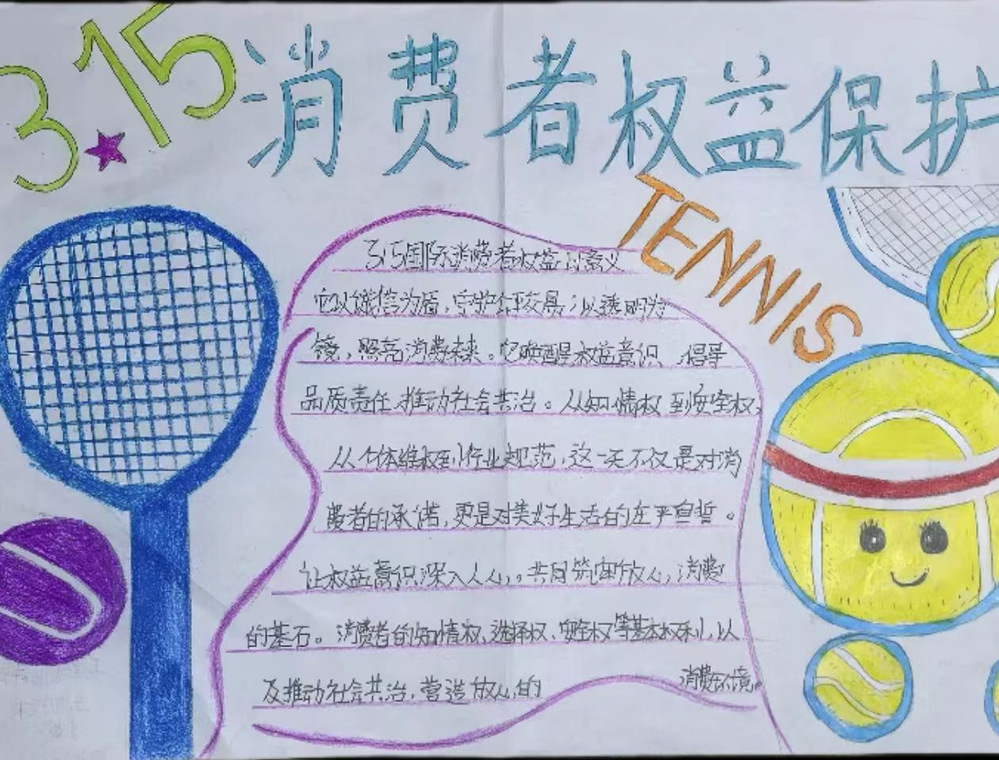 3.15 消费者权益保护
TENNIS
315国际消费者权益的意义
它以诚信为盾，守护公平交易；以透明为
镜，照亮消费未来。它唤醒权益意识 倡导
品质责任，推动社会共治。从知情权到安全权，
从个体维权到行业规范，这一天不仅是对消
费者的承诺，更是对美好生活的庄严宣誓。
让权益意识深入人心，共同筑牢放心消费
的基石。消费者的知情权、选择权、安全权等基本权利，以
及推动社会共治，营造放心的 消费环境。